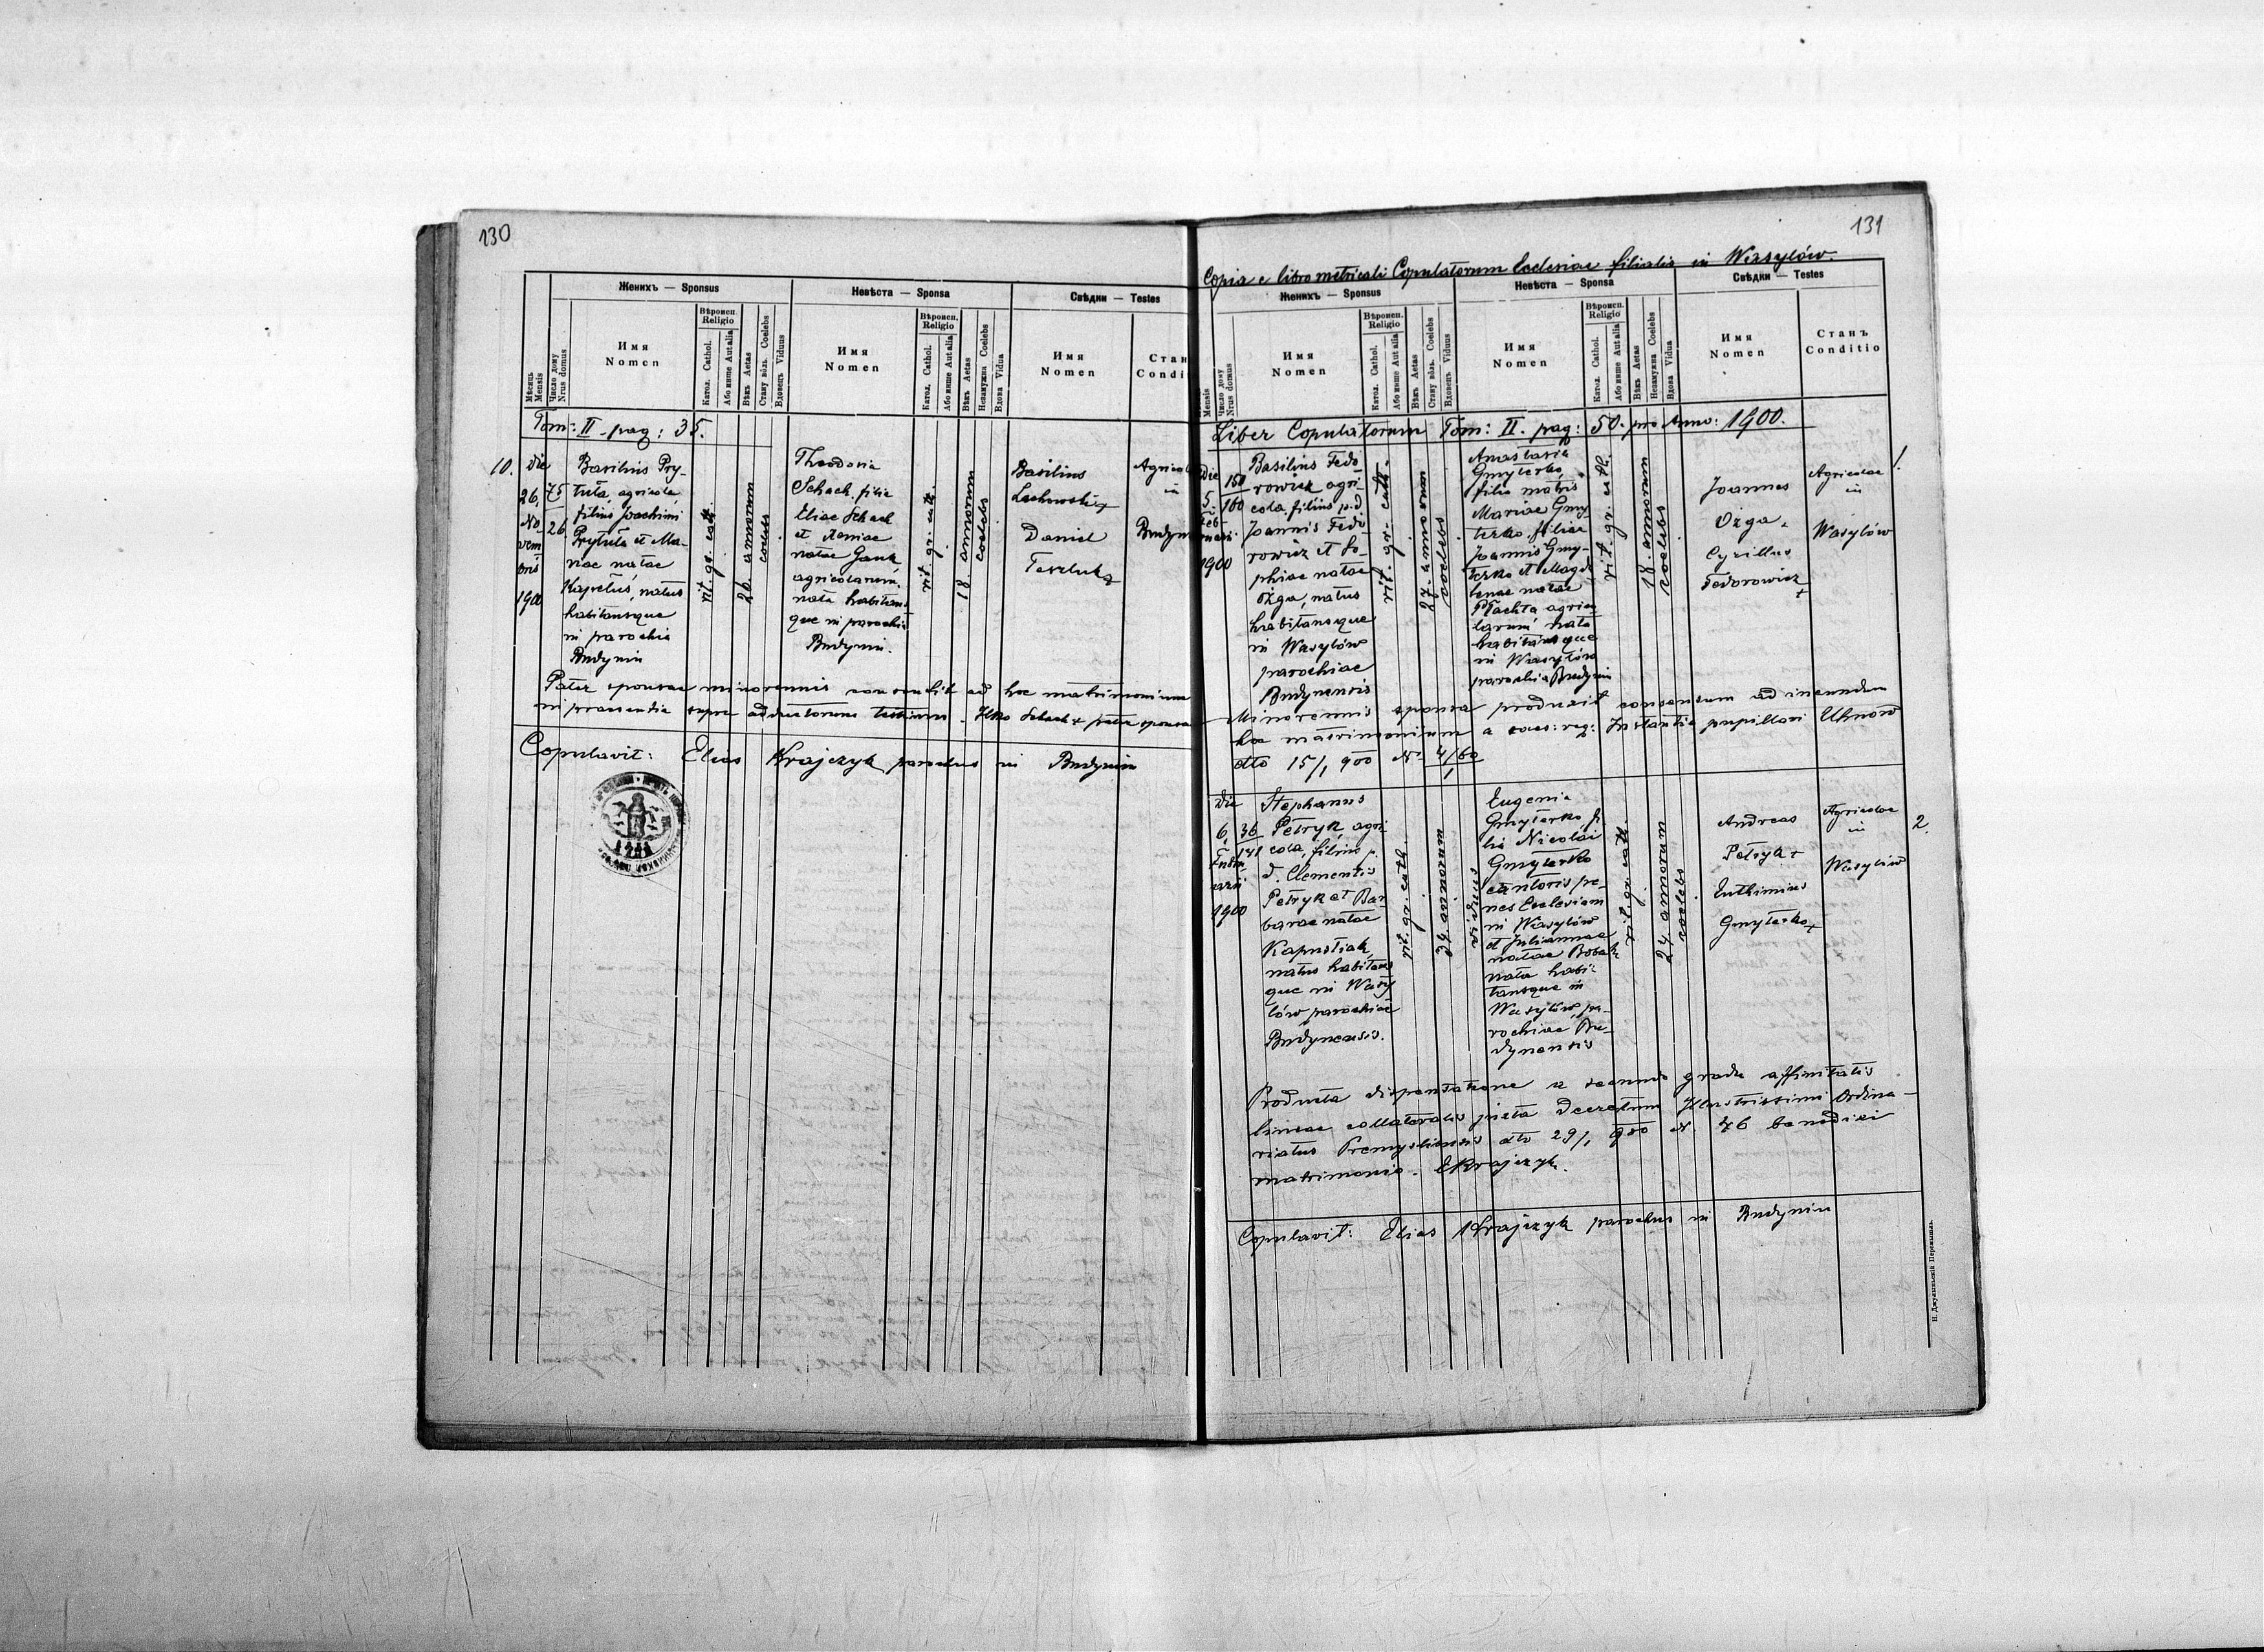 130
Женихъ — Sponsus
Невѣста — Sponsa
Свѣдки — Testes
Мѣсяць Mensis
Число дому Nrus domus
Имя Nomen
Вѣроисп. Religio
Катол. Cathol.
Або инше Aut alia
Вѣкъ Aetas
Стану вôль. Coelebs
Вдовець Viduus
Имя Nomen
Вѣроисп. Religio
Катол. Cathol.
Або инше Aut alia
Вѣкъ Aetas
Незамужна Coelebs
Вдова Vidua
Имя Nomen
Стан
Condi
Tom: II. pag: 35.
10.
Die
26,
No-
vem
bris
1900
75
26
Basilius Pry-
tuła, agricola,
filius Joachimi
Prytuła et Ma-
riae natae
Kapeluś, natus
habitansque
in parochia
Budynin
rit. gr. cath.
26 annorum
coelebs
Theodosia
Schach, filia
Eliae Schach
et Xeniae
natae Gauk
agricolarum,
nata habitans-
que in parochia
Budynin.
rit. gr. cath.
18 annorum
coelebs
Basilius
Lachowski +
Daniel
Teszluk +
Agricol
in
Budyn
Pater sponsae minorennis consensit ad hoc matrimonium
in praesentia supra adductorum testium. Ilko Schach + pater sponsae
Copulavit: Elias Krajczyk parochus in Budynin
131
Copia e libro metricali Copulatorum Ecclesiae filialis in Wasylów.
Женихъ — Sponsus
Невѣста — Sponsa
Свѣдки — Testes
Mensis
Число дому Nrus domus
Имя Nomen
Вѣроисп. Religio
Катол. Cathol.
Або инше Aut alia
Вѣкъ Aetas
Стану вôль. Coelebs
Вдовець Viduus
Имя Nomen
Вѣроисп. Religio
Катол. Cathol.
Або инше Aut alia
Вѣкъ Aetas
Незамужна Coelebs
Вдова Vidua
Имя Nomen
Станъ Conditio
Liber Copulatorum Tom: II. pag: 50. pro Anno: 1900.
Die
5.
Feb-
ruarii
1900
160
Basilius Fedo
rowicz agri-
cola, filius p. d.
Joannis Fedo
rowicz et So-
phiae natae
Ożga, natus
habitansque
in Wasylów
parochiae
Budynensis
rit. gr. cath.
27 annorum
coelebs
Anastasia
Gmyterko,
filia matris
Mariae Gmy-
terko, filiae
Joannis Gmy-
terko et Magda
lenae natae
Płachta agrico
larum nata
habitansque
in Wasylów
parochia Budynin
rit. gr. cath.
18 annorum
coelebs
Joannes
Ożga +
Cyrillus
Fedorowicz
+
Agricolae
in
Wasylów
1.
Minorennis sponsa produxit consensum ad ineundum
hoc matrimonium a caes: reg: Instantia pupillari Uhnów
dto 15/1 900 Nr. 4/60
1
Die
6,
Februarii
1900
36
141
Stephanus
Petryk, agri-
cola, filius p.
d. Clementis
Petryk et Bar-
barae natae
Kapustiak,
natus habitans
que in Wasy
lów parochiae
Budynensis.
rit. gr. cath.
34 annorum
viduus
Eugenia
Gmyterko fi
lia Nicolai
Gmyterko
cantoris pe-
nes Ecclesiam
in Wasylów
et Juliannae
natae Bobak
nata habi-
tansque in
Wasylów, pa-
rochiae Bu-
dynensis
rit. gr. cath.
24 annorum
coelebs
Andreas
Petryk +
Euthimius
Gmyterko +
Agricolae
in
Wasylów
2.
Producta dispensatione a secundo gradu affinitatis
lineae collateralis juxta Decretum Illustrissimi Ordina-
riatus Premysliensis dto 29/1 900 N. 46 benedixi
matrimonio. EKrajczyk.
Copulavit: Elias Krajczyk parochus in Budynin